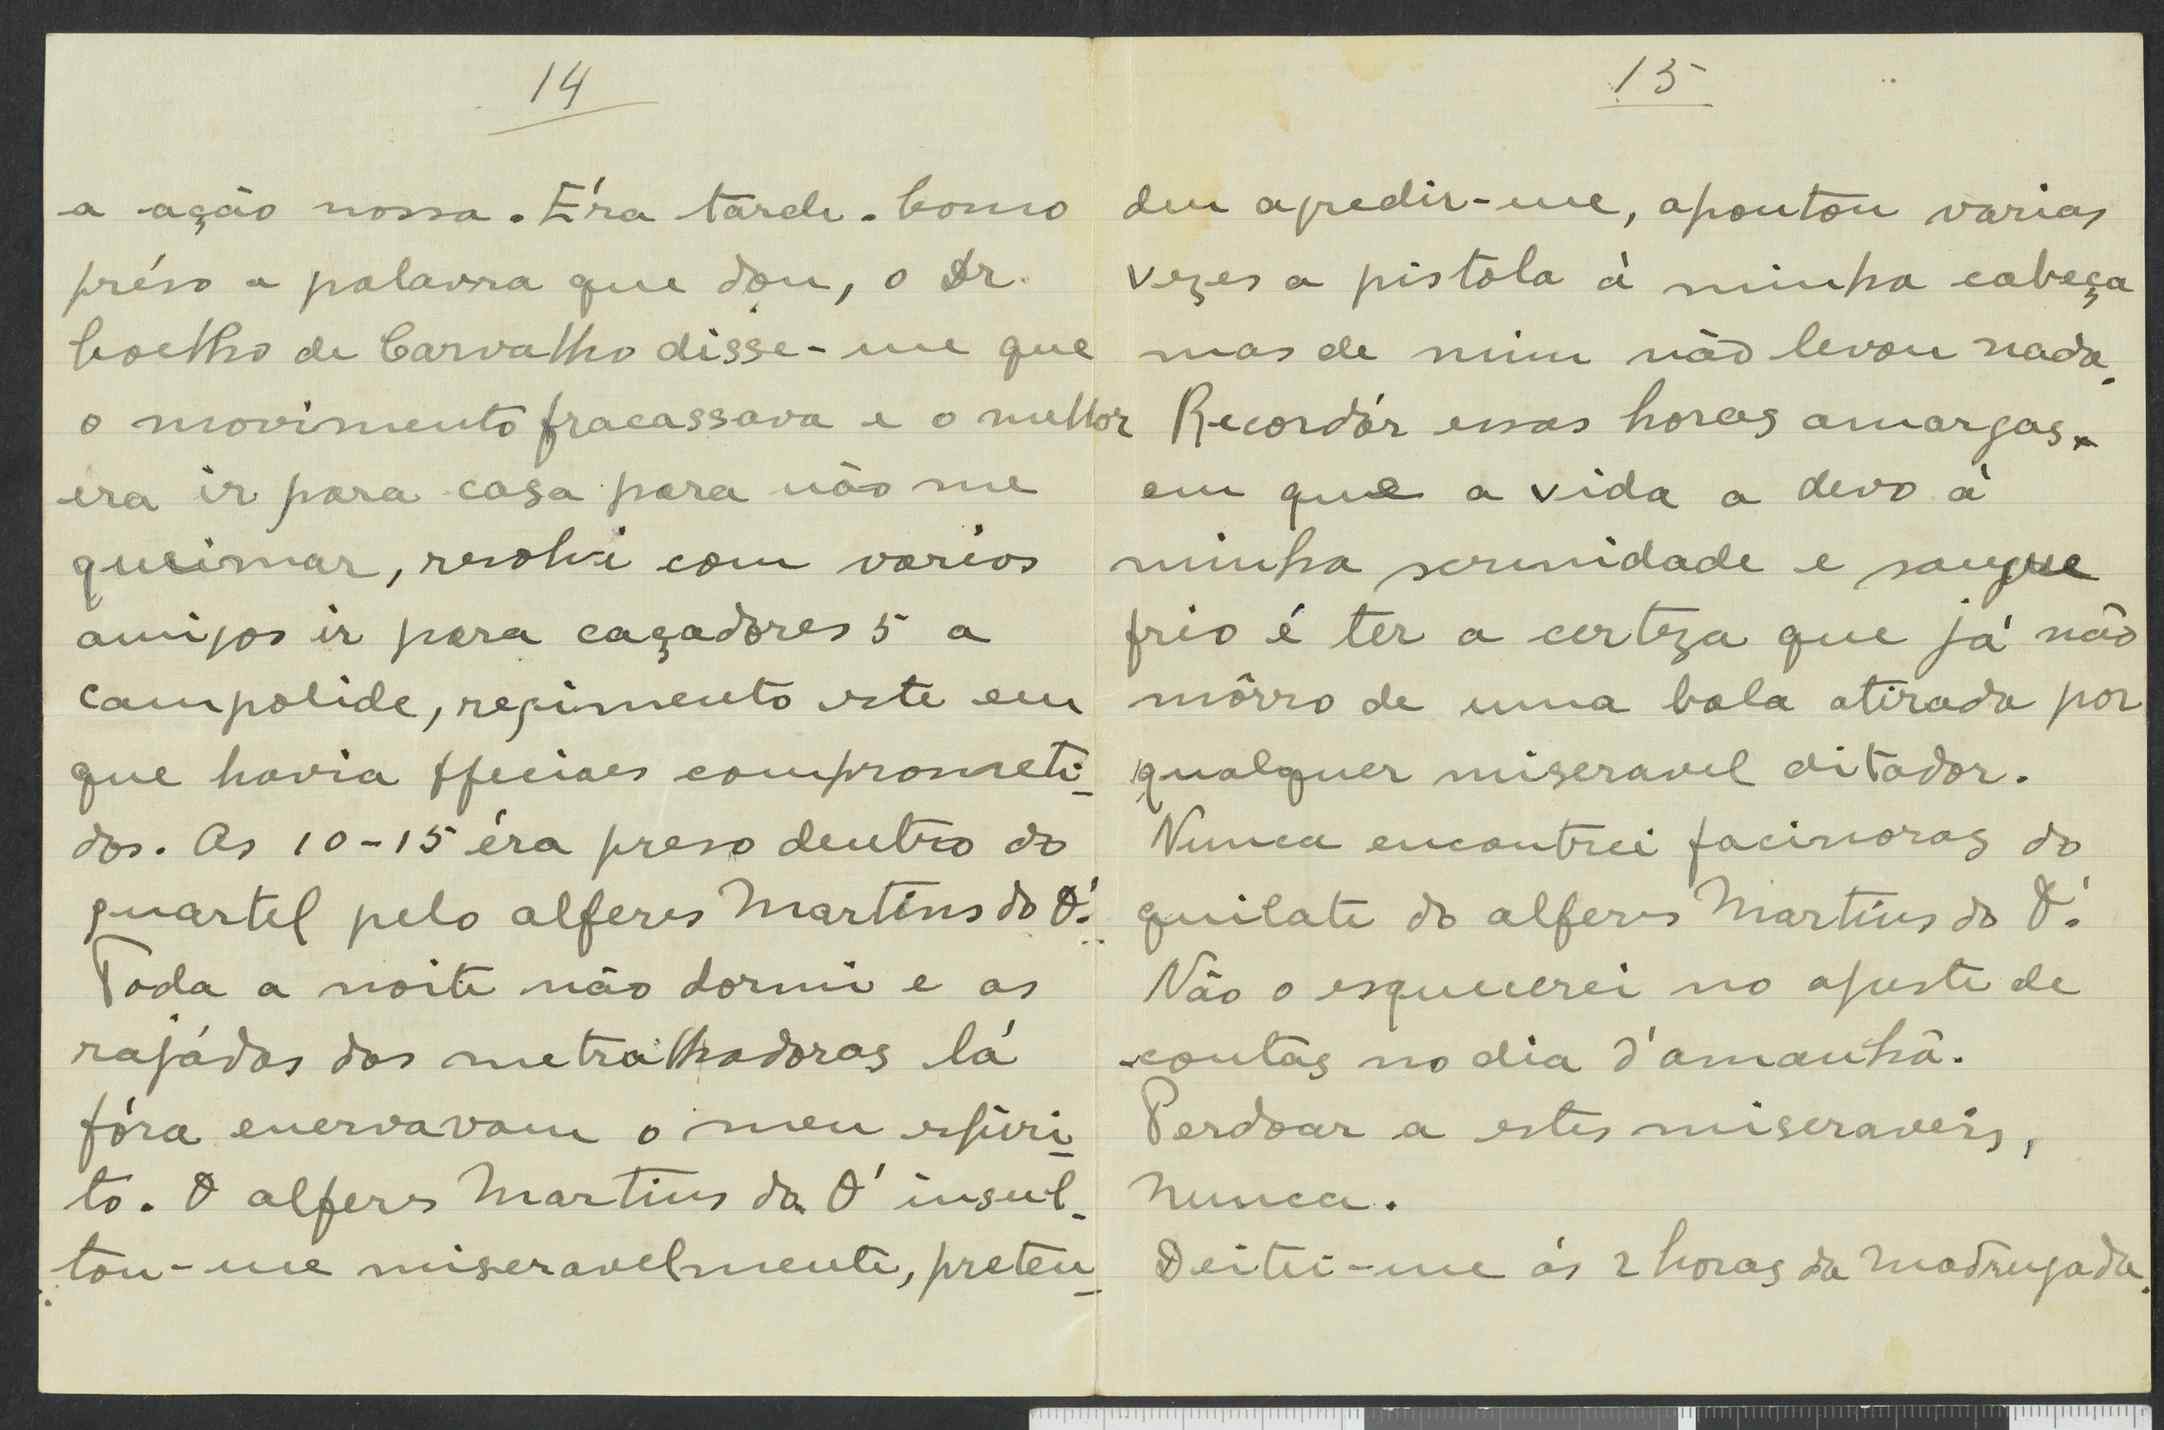 14
a ação nossa. Éra tarde. Como
préso a palavra que dou, o Dr.
Coelho de Carvalho disse-me que
o movimento fracassava e o melhor
era ir para casa para não me
queimar, resolvi com varios
amigos ir para caçadores 5 a
Campolide, regimento este em
que havia officiaes comprometi-
dos. As 10-15 éra preso dentro do
quartel pelo alferes Martins do Ó.
Toda a noite não dormi e as
rajádas das metralhadoras lá
fóra enervavam o meu espiri-
to. O alferes Martins do Ó insul-
tou-me miseravelmente, preten-
15
deu agredir-me, apontou varias
vezes a pistola à minha cabeça
mas de mim não levou nada.
Recordár essas horas amargas
em que a vida a devo à
minha serenidade e sangue
frio é ter a certeza que já não
môrro de uma bala atirada por
qualquer miseravel ditador.
Nunca encontrei facinoras do
quilate do alferes Martins do Ó.
Não o esquecerei no ajuste de
contas no dia d'amanhã.
Perdoar a estes miseraveis,
nunca.
Deitei-me ás 2 horas da madrugada.